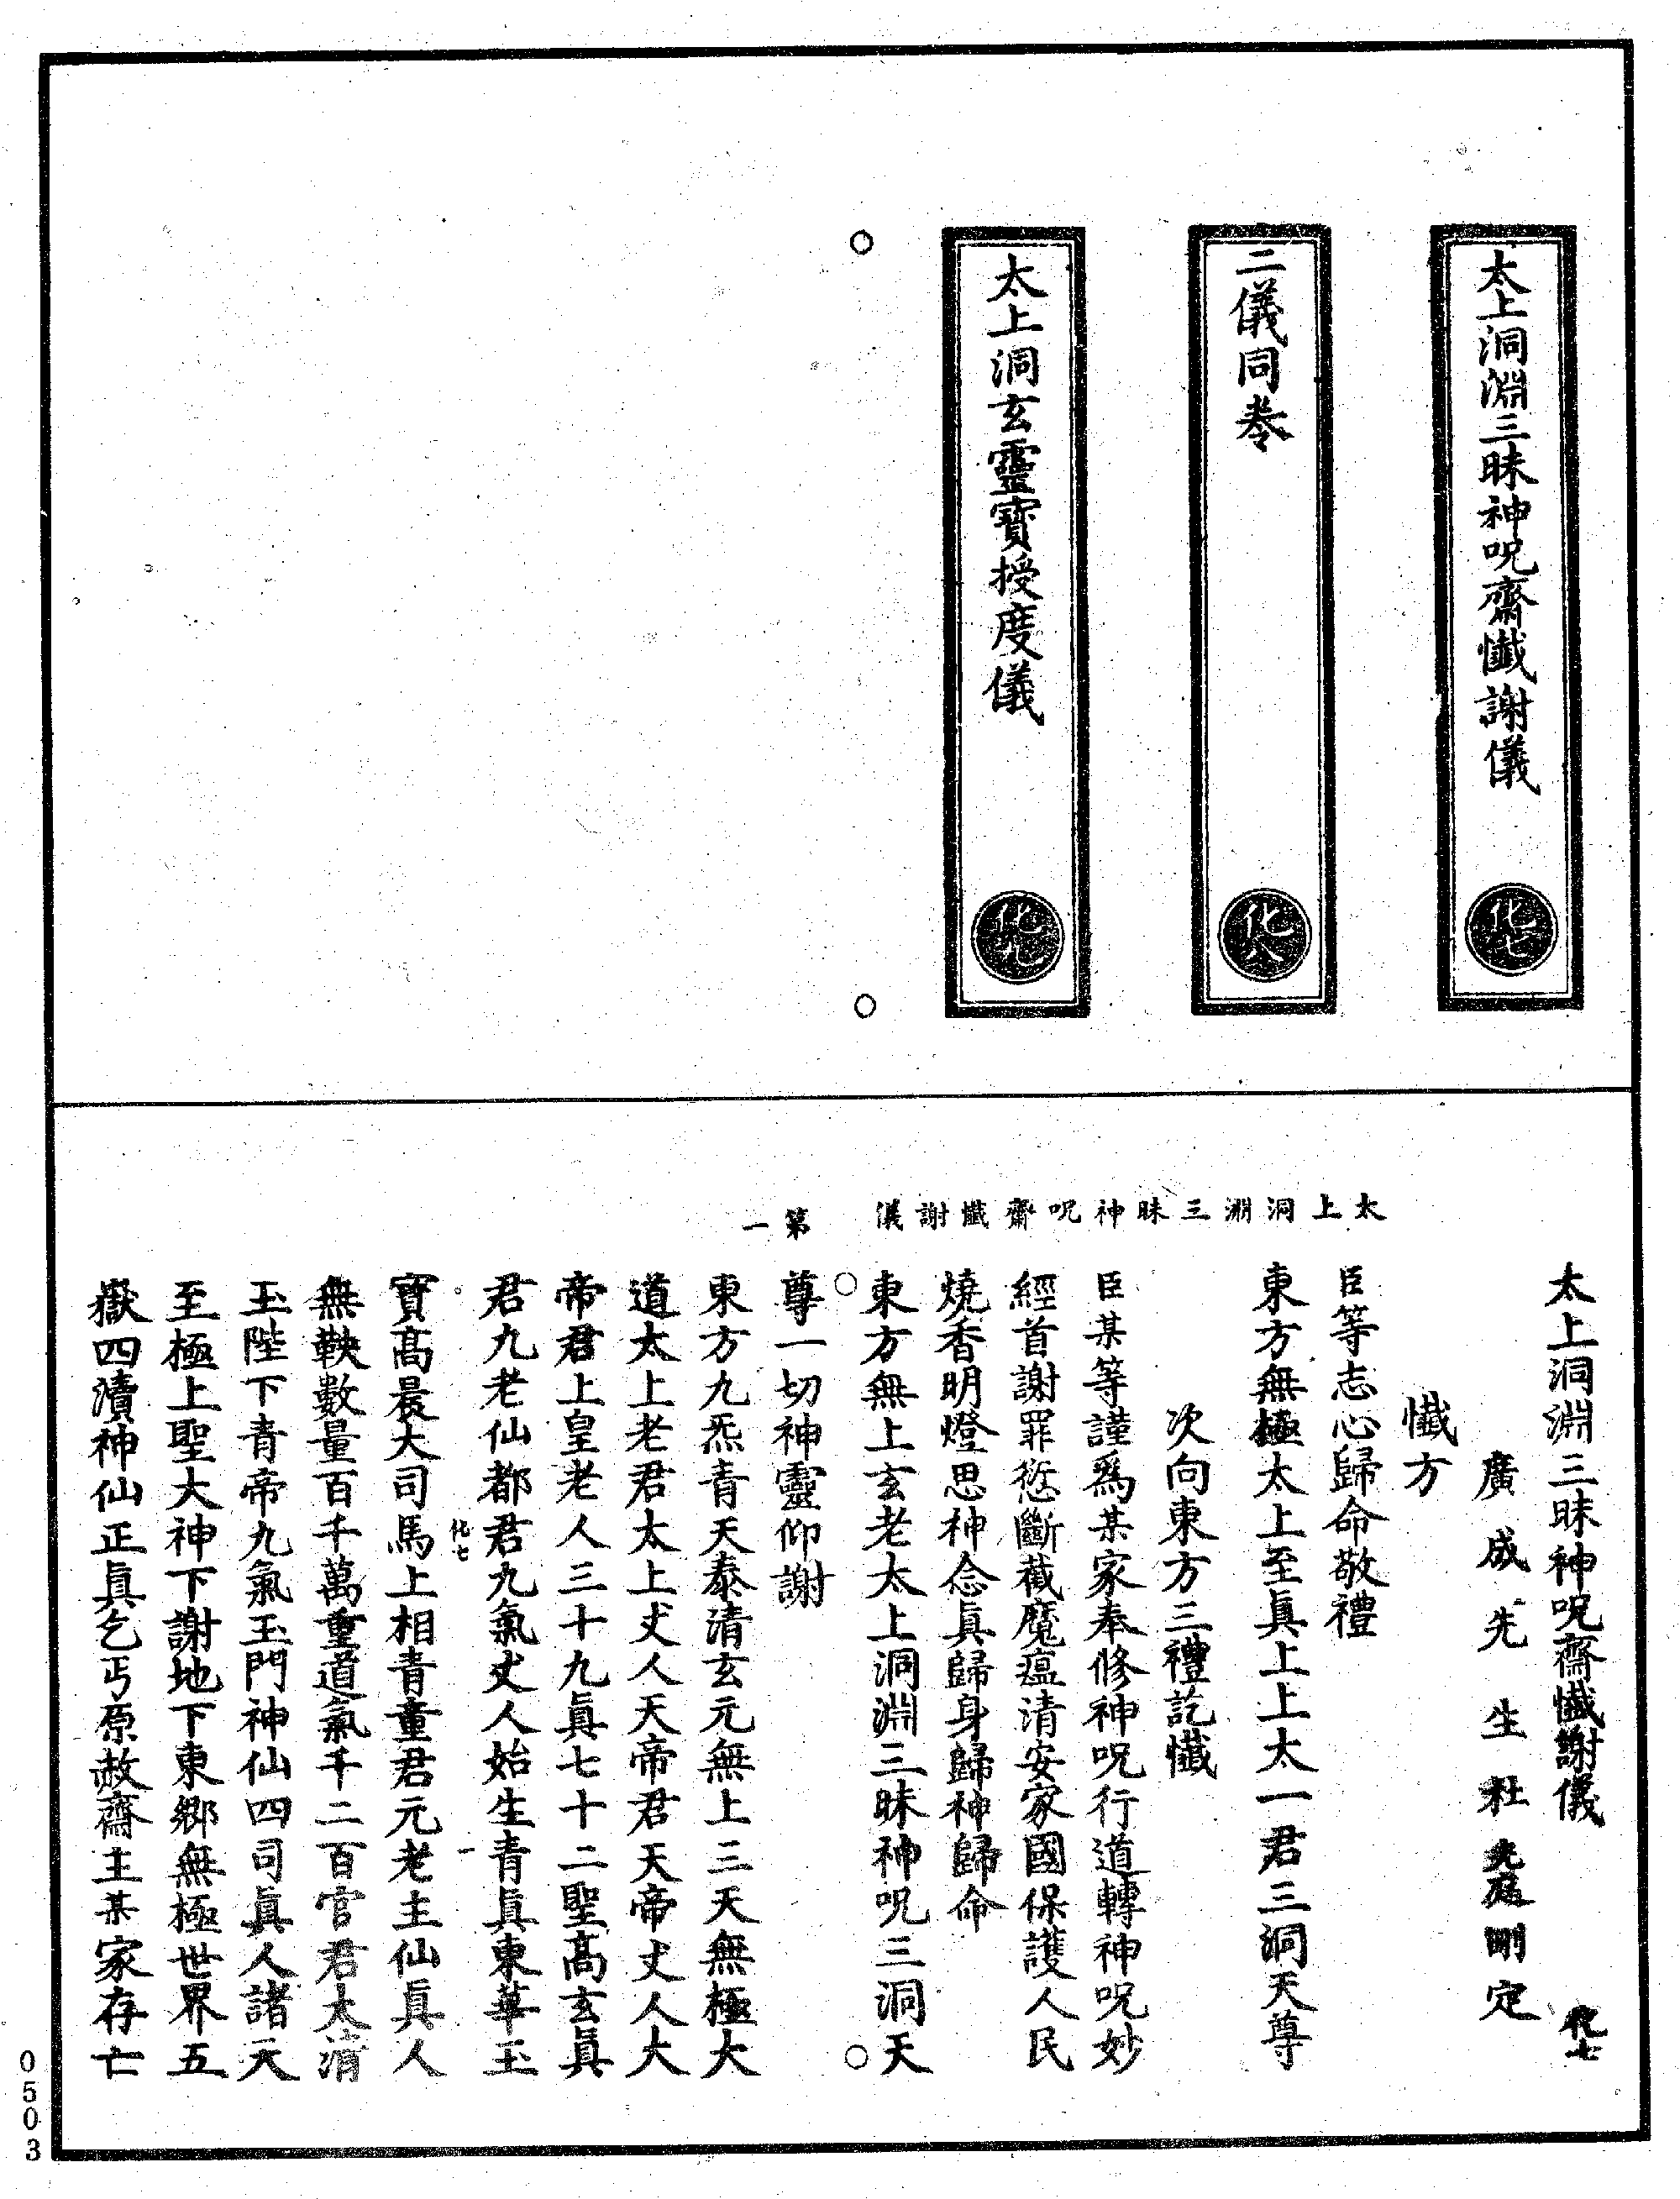 太上洞淵三昧神呪齋懺謝儀
化七
二儀同卷
化八
太上洞玄靈寶授度儀
化九
太上洞淵三昧神呪齋懺謝儀 化七
廣成先生杜光庭刪定
懺方
臣等志心歸命敬禮
東方無極太上至眞上上太一君三洞天尊
次向東方三禮訖懺
臣某等謹爲某家奉修神呪行道轉神呪妙
經首謝罪愆斷截魔瘟清安家國保護人民
燒香明燈思神念眞歸身歸神歸命
東方無上玄老太上洞淵三昧神呪三洞天
太上洞淵三昧神呪齋懺謝儀
第一
尊一切神靈仰謝
東方九炁青天泰清玄元無上三天無極大
道太上老君太上丈人天帝君天帝丈人大
帝君上皇老人三十九眞七十二聖高玄眞
君九老仙都君九氣丈人始生青眞東華玉
化七 一
寶高晨大司馬上相青童君元老主仙眞人
無鞅數量百千萬重道氣千二百官君太清
玉陛下青帝九氣玉門神仙四司眞人諸天
至極上聖大神下謝地下東鄉無極世界五
嶽四瀆神仙正眞乞丐原赦齋主某家存亡
0503